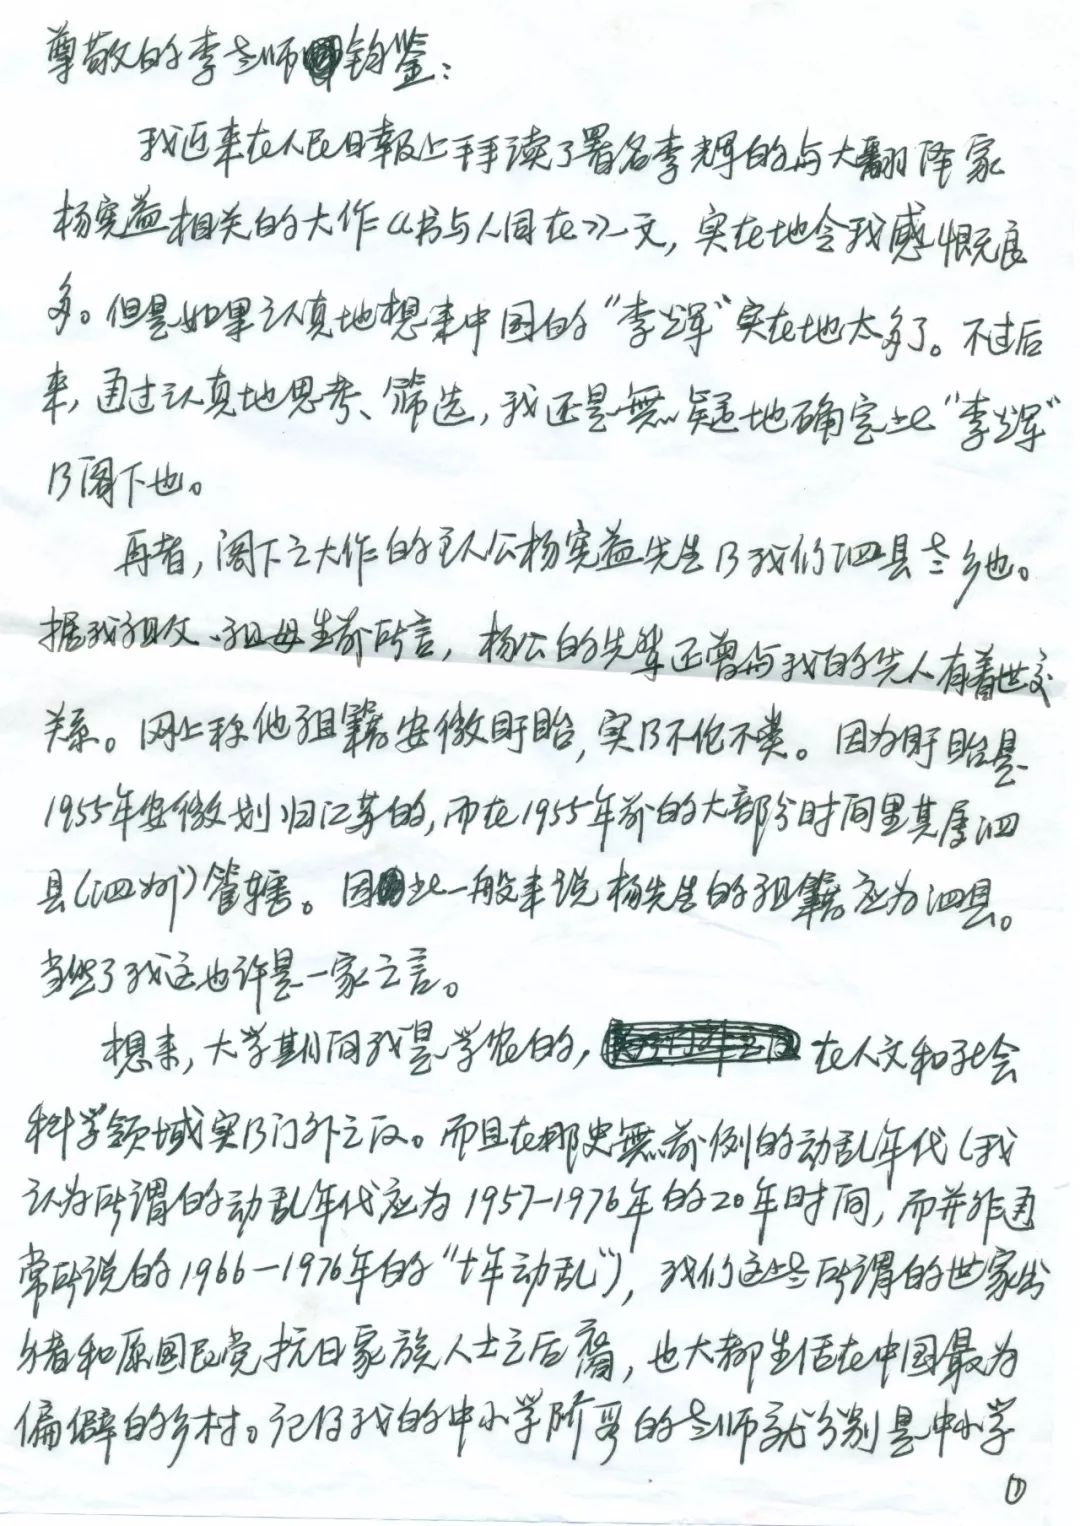 尊敬的李老师钧鉴：
我近来在人民日報上拜读了署名李辉的与大翻译家
杨宪益相关的大作《书与人同在》一文，实在地令我感慨良
多。但是如果认真地想来中国的“李辉”实在地太多了。不过后
来，通过认真地思考、筛选，我还是無疑地确定此“李辉”
乃阁下也。
再者，阁下之大作的主人公杨宪益先生乃我们泗县老乡也。
据我祖父、祖母生前所言，杨公的先辈还曾与我的先人有着世交
关系。网上称他祖籍安徽盱眙，实乃不伦不类。因为盱眙是
1955年安徽划归江苏的，而在1955年前的大部分时间里其属泗
县（泗州）管辖。因此一般来说杨先生的祖籍应为泗县。
当然了我这也许是一家之言。
想来，大学期间我是学农的，在人文和社会
科学领域实乃门外之汉。而且在那史無前例的动乱年代（我
认为所谓的动乱年代应为1957—1976年的20年时间，而并非通
常所说的1966—1976年的“十年动乱”），我们这些所谓的世家出
身者和原国民党抗日家族人士之后裔，也大都生活在中国最为
偏僻的乡村。记得我的中小学阶段的老师就分别是中小学
①